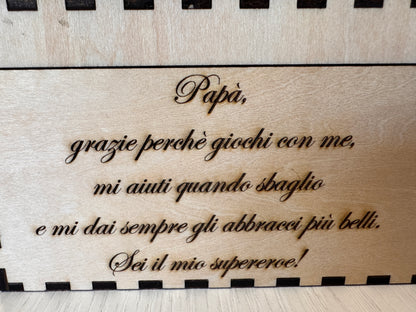 Papà,
grazie perchè giochi con me,
mi aiuti quando sbaglio
e mi dai sempre gli abbracci più belli.
Sei il mio supereroe!